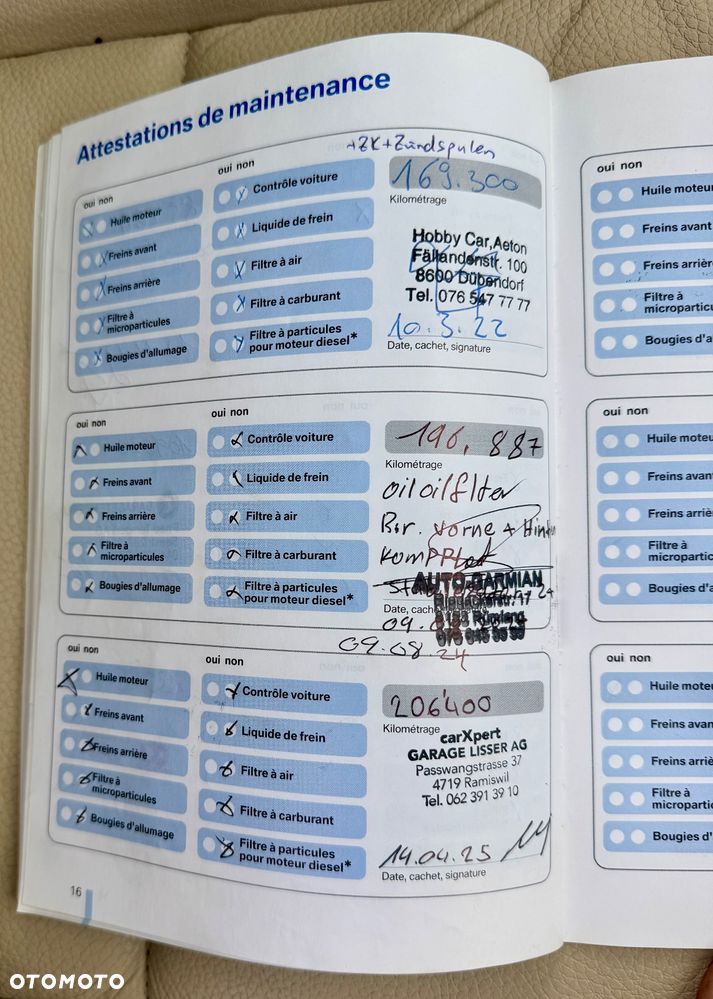 Attestations de maintenance
+ZK+Zündspulen
oui non
oui non
Huile moteur
Contrôle voiture
Freins avant
Liquide de frein
Freins arrière
Filtre à air
Filtre à
microparticules
Filtre à carburant
Bougies d'allumage
Filtre à particules
pour moteur diesel*
169.300
Kilométrage
Hobby Car, Aeton
Fällandenstr. 100
8600 Dübendorf
Tel. 076 547 77 77
10.3.22
Date, cachet, signature
oui non
oui non
Huile moteur
Contrôle voiture
Freins avant
Liquide de frein
Freins arrière
Filtre à air
Filtre à
microparticules
Filtre à carburant
Bougies d'allumage
Filtre à particules
pour moteur diesel*
196.887
Kilométrage
oil oilfilter
Br. vorne +
AUTO GARMIAN
Date, cach
09.08.24
oui non
oui non
Huile moteur
Contrôle voiture
Freins avant
Liquide de frein
Freins arrière
Filtre à air
Filtre à
microparticules
Filtre à carburant
Bougies d'allumage
Filtre à particules
pour moteur diesel*
206'400
Kilométrage
carXpert
GARAGE LISSER AG
Passwangstrasse 37
4719 Ramiswil
Tel. 062 391 39 10
14.04.25
Date, cachet, signature
16
oui non
Huile moteu
Freins avant
Freins arrièr
Filtre à
micropartic
Bougies d'a
oui non
Huile moteu
Freins avant
Freins arriè
Filtre à
micropartic
Bougies d'a
oui non
Huile moteu
Freins avan
Freins arriè
Filtre à
microparti
Bougies d'
OTOMOTO